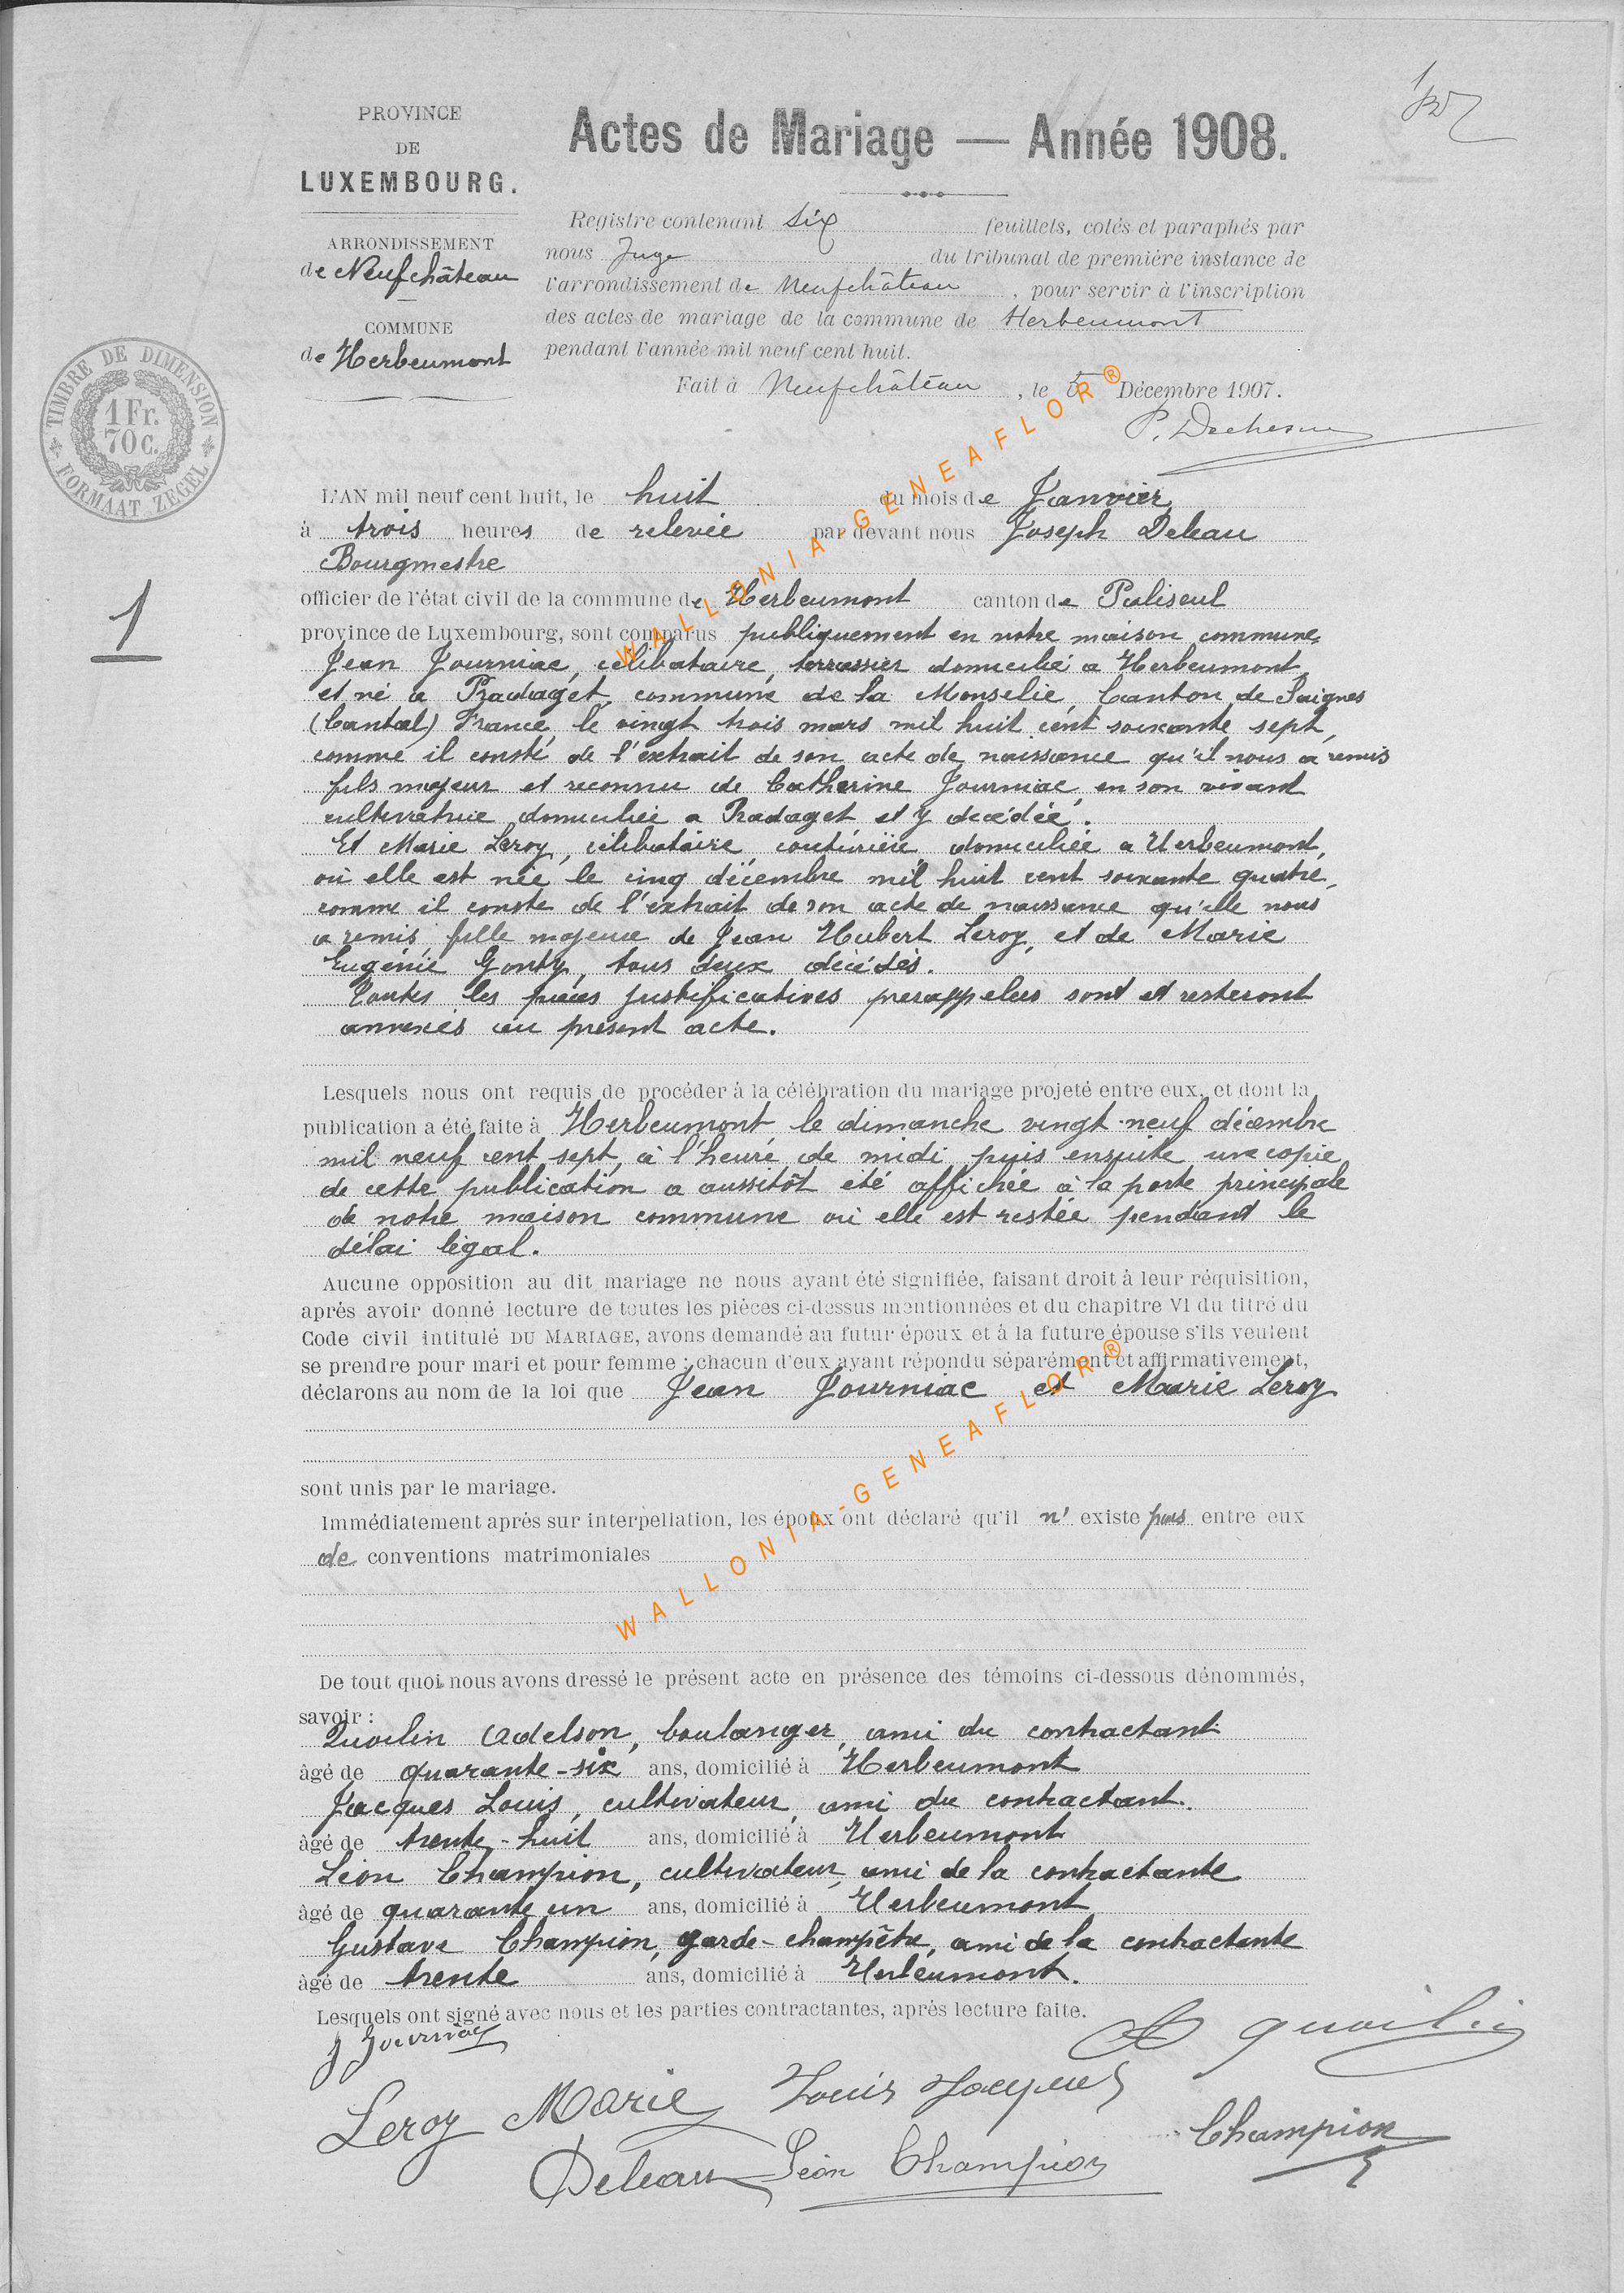 PROVINCE
DE
LUXEMBOURG.
ARRONDISSEMENT
de Neufchâteau
COMMUNE
de Herbeumont
TIMBRE DE DIMENSION
1 Fr.
70 c.
FORMAAT ZEGEL
1
Actes de Mariage — Année 1908.
Registre contenant six feuillets, cotés et paraphés par
nous Juge du tribunal de première instance de
l'arrondissement de Neufchâteau, pour servir à l'inscription
des actes de mariage de la commune de Herbeumont
pendant l'année mil neuf cent huit.
Fait à Neufchâteau, le 5 Décembre 1907.
L'AN mil neuf cent huit, le huit du mois de Janvier,
à trois heures de relevée par devant nous Joseph Deleau
Bourgmestre
officier de l'état civil de la commune de Herbeumont canton de Paliseul
province de Luxembourg, sont comparus publiquement en notre maison commune,
Jean Journiac, célibataire, terrassier domicilié a Herbeumont
et né a Pradaget, commune de la Monselie, Canton de Saignes
(Cantal) France, le vingt trois mars mil huit cent soixante sept,
comme il conste de l'extrait de son acte de naissance qu'il nous a remis
fils majeur et reconnu de Catherine Journiac, en son vivant
cultivatrice domiciliée a Pradaget et y décédée.
Et Marie Leroy, célibataire, couturière, domiciliée a Herbeumont,
où elle est née le cinq décembre mil huit cent soixante quatre,
comme il conste de l'extrait de son acte de naissance qu'elle nous
a remis, fille majeure de Jean Hubert Leroy, et de Marie
Eugénie Gonty, tous deux décédés.
Toutes les pièces justificatives prerappelées sont et resteront
annexées au présent acte.
Lesquels nous ont requis de procéder à la célébration du mariage projeté entre eux, et dont la
publication a été faite à Herbeumont, le dimanche vingt-neuf décembre
mil neuf cent sept, à l'heure de midi, puis ensuite une copie
de cette publication a aussitôt été affichée à la porte principale
de notre maison commune où elle est restée pendant le
délai légal.
Aucune opposition au dit mariage ne nous ayant été signifiée, faisant droit à leur réquisition,
après avoir donné lecture de toutes les pièces ci-dessus mentionnées et du chapitre VI du titre du
Code civil intitulé DU MARIAGE, avons demandé au futur époux et à la future épouse s'ils veulent
se prendre pour mari et pour femme ; chacun d'eux ayant répondu séparément et affirmativement,
déclarons au nom de la loi que Jean Journiac et Marie Leroy
sont unis par le mariage.
Immédiatement après sur interpellation, les époux ont déclaré qu'il n' existe pas entre eux
de conventions matrimoniales
De tout quoi nous avons dressé le présent acte en présence des témoins ci-dessous dénommés,
savoir :
Quoilin Adelson, boulanger, ami du contractant
âgé de quarante-six ans, domicilié à Herbeumont
Jacques Louis, cultivateur, ami du contractant.
âgé de trente-huit ans, domicilié à Herbeumont
Léon Champion, cultivateur, ami de la contractante
âgé de quarante un ans, domicilié à Herbeumont
Gustave Champion, garde-champêtre, ami de la contractante
âgé de trente ans, domicilié à Herbeumont.
Lesquels ont signé avec nous et les parties contractantes, après lecture faite.
J Journiac
A Quoilin
Leroy Marie
Louis Jacques
Champion
Deleau
Léon Champion
WALLONIA-GENEAFLOR®
WALLONIA-GENEAFLOR®